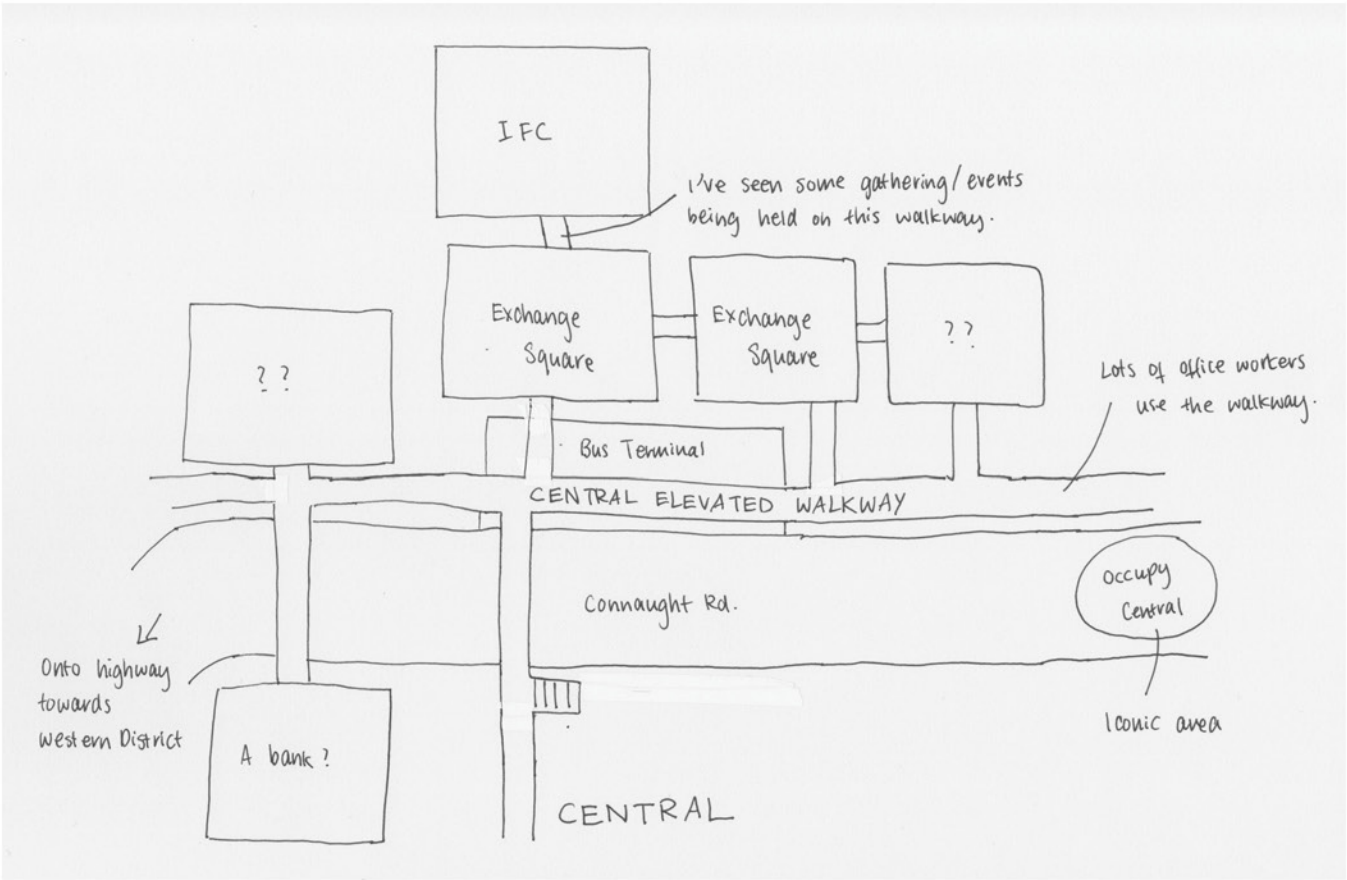 IFC
I've seen some gathering/events
being held on this walkway.
Exchange
Square
Exchange
Square
??
??
Lots of office workers
use the walkway.
Bus Terminal
CENTRAL ELEVATED WALKWAY
Occupy
Central
Connaught Rd.
Onto highway
towards
Western District
Iconic area
A bank?
CENTRAL